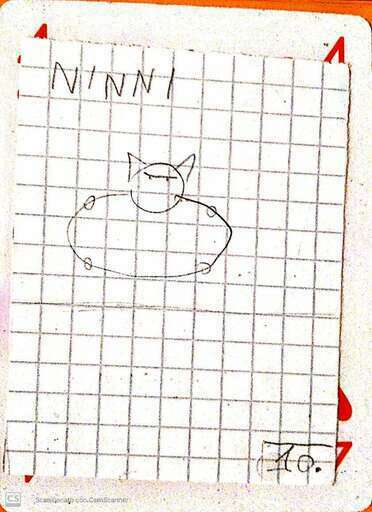 NINNI
10.
CS Scansionato con CamScanner